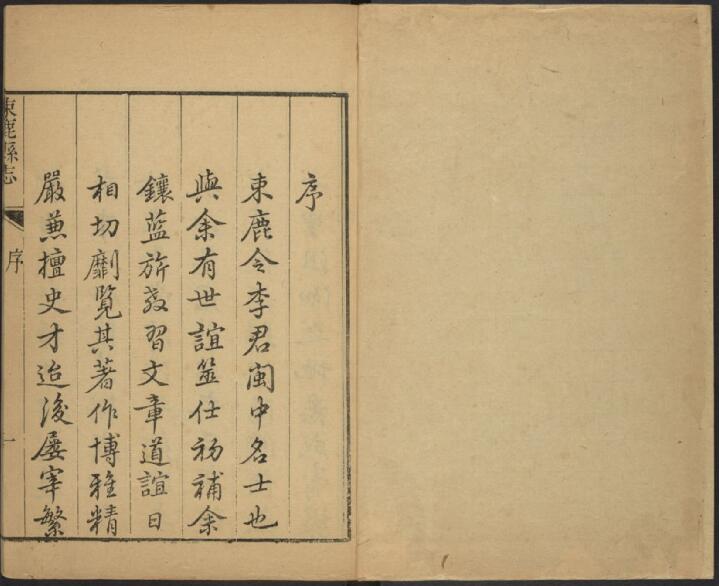 序
束鹿令李君閩中名士也
與余有世誼筮仕初補余
鑲藍旂教習文章道誼日
相切劘覽其著作博雅精
嚴兼擅史才迨後屢宰繁
束鹿縣志
序
一